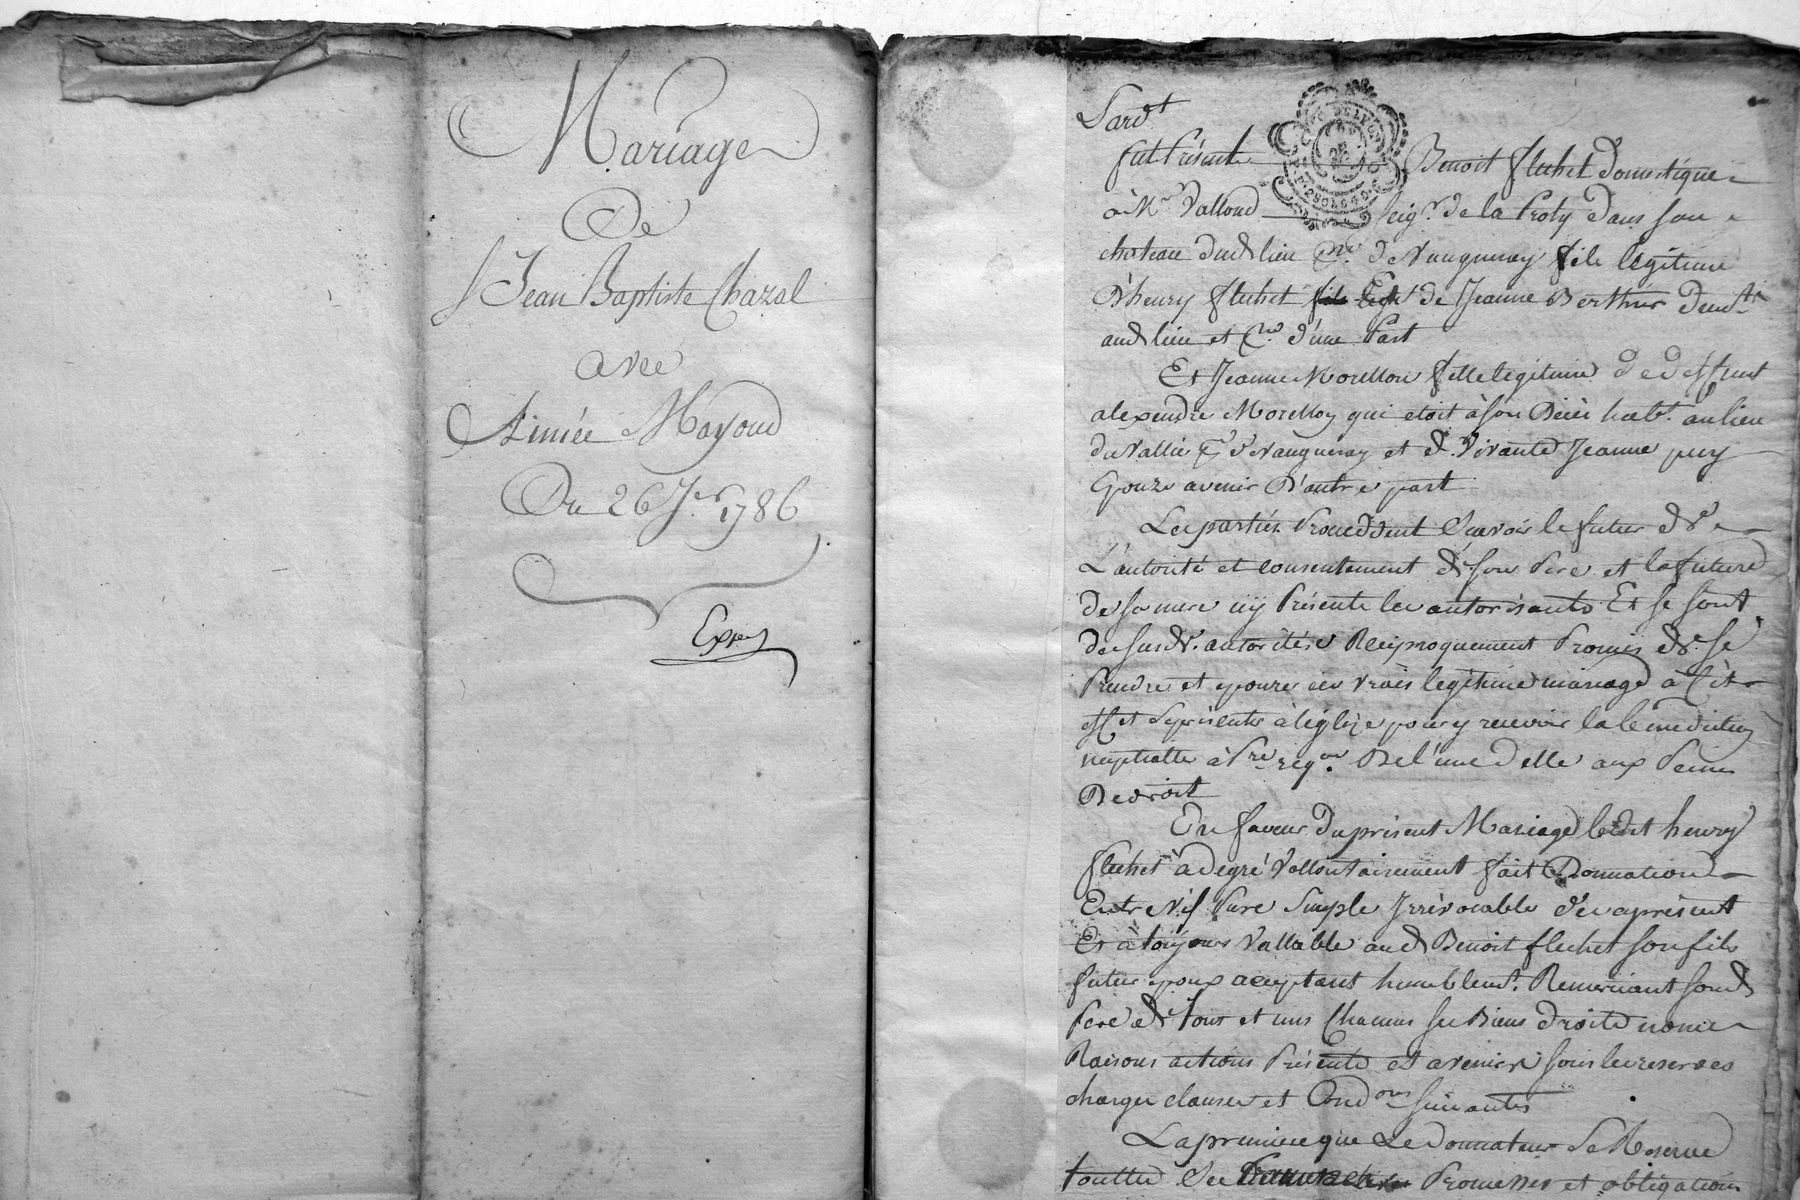 Mariage
De
Jean Baptiste Chazal
avec
Aimée Mayoud
Du 26 Jer 1786
Expéé
Pardt
fut Présent Benoit fluchet domestique
à Mr Valloud Seigr de la Proty dans son
chateau dud lieu de Vaugneray fils légitime
D'henry fluchet de Jeanne Berthier demts
aud lieu et d'une Part
Et Jeanne Morellon fille legitime de deffunt
alexendre Morellon qui etoit à son Décès habt. au lieu
du Vallié de Vaugneray et de Vivante Jeanne puy
Epouze avenir D'autre part
Les parties Proceddent Scavoir le futur de
L'autorité et consentement de son Pere et la future
de sa mere icy Présente les autorisants Et se sont
de susd. autorités Reciproquement Promis de se
Prendre et epouzer en vrais legitime mariage à Cet
effet se présenter à léglize pour y recevoir la bénédiction
nuptialle à Pre reqon De l'une d'elle aux Peines
De droit
En faveur Du présent Mariage ledit henry
fluchet à de gré Vollontairement fait Donnation
Entre Vif Pure Simple Irrévocable dès aprésent
Et à toujours Vallable aud Benoit fluchet son fils
futur epoux acceptant humblemt. Remerciant sond
Pere de tous et uns Chacuns ses Biens droits noms
Raisons actions Présents et avenirs sous les reserves
charges clauses et Condons suivantes
La premiere que Le donnateur Se Reserve
touttes Les Promesses et obligations